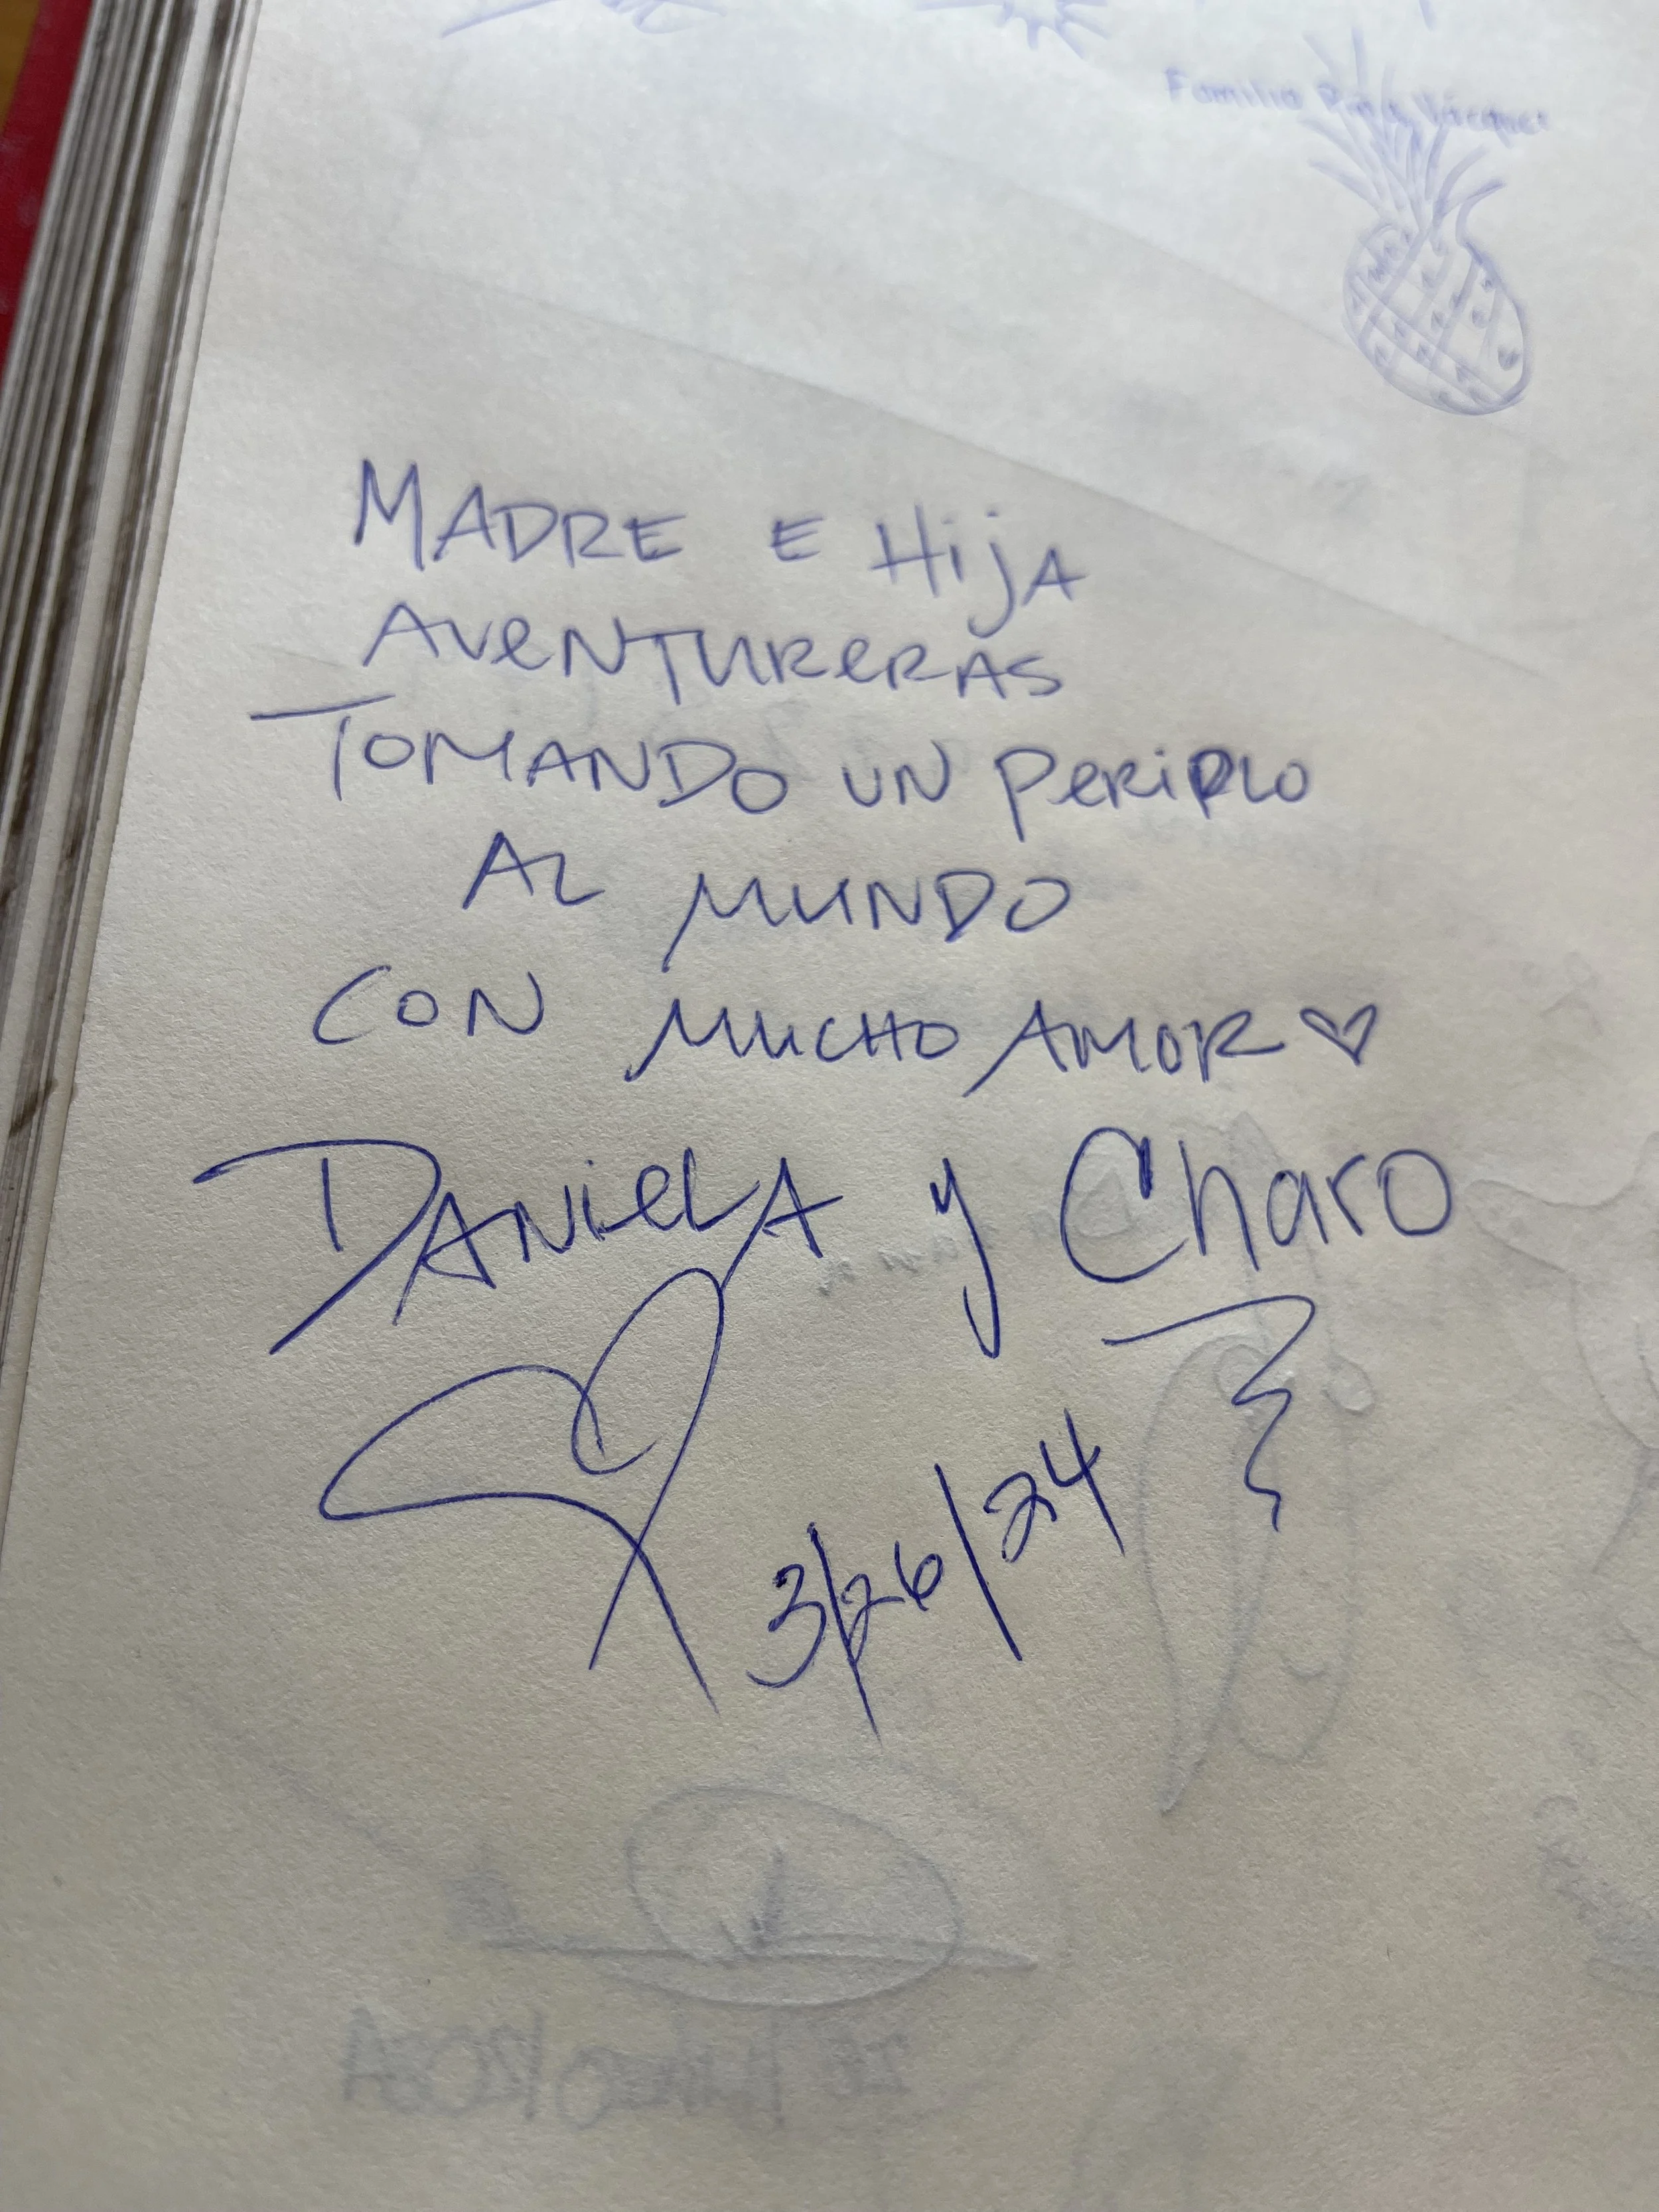 Familia Piña Vázquez
MADRE E HijA
AVENTURERAS
TOMANDO UN PERIPLO
AL MUNDO
CON MUCHO AMOR ♡
DANIELA y Charo
3/26/24